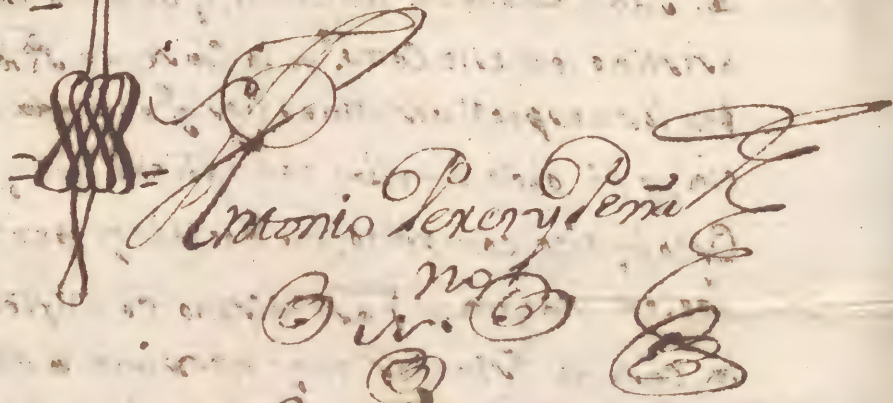 Antonio Perez y Peña
no